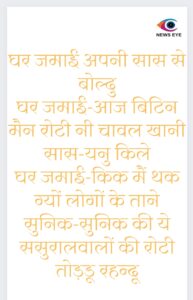 NEWS EYE
घर जमाई अपनी सास से
बोल्दु
घर जमाई-आज बिटिन
मैन रोटी नी चावल खानी
सास-यनु किले
घर जमाई-किक मैं थक
ग्यों लोगों के ताने
सुनिक-सुनिक की ये
ससुरालवालों की रोटी
तोड़्डू रहन्दू